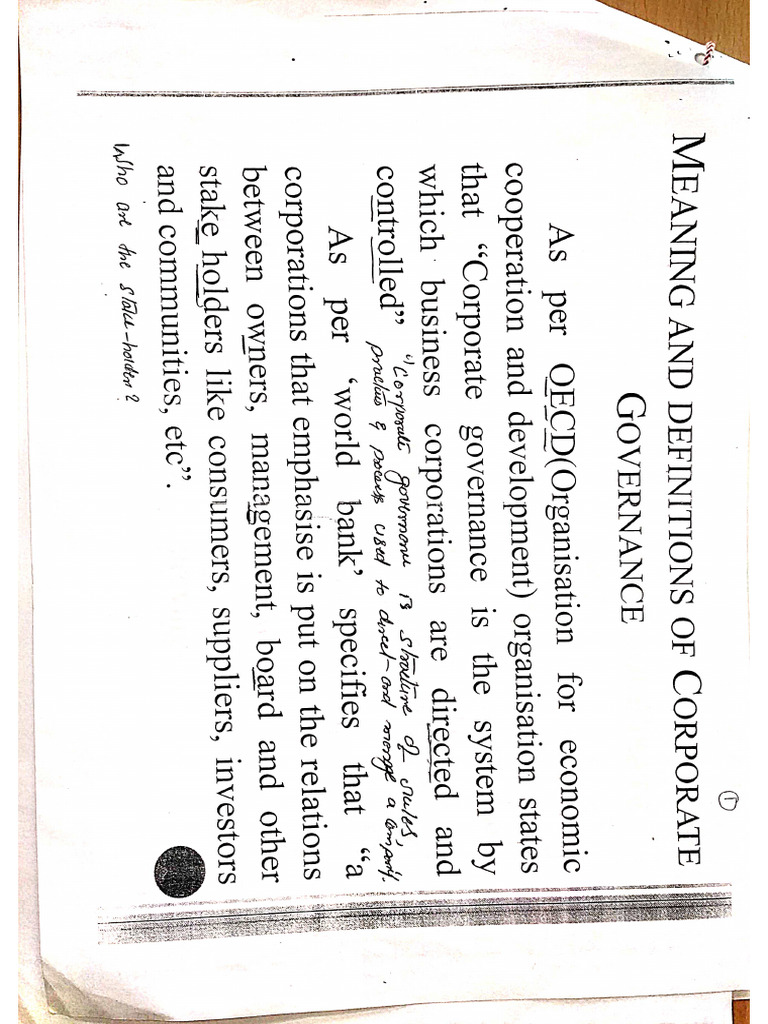 ①
MEANING AND DEFINITIONS OF CORPORATE
GOVERNANCE
As per OECD(Organisation for economic
cooperation and development) organisation states
that “Corporate governance is the system by
which business corporations are directed and
controlled”
“Corporate governance is structure of rules,
practices & process used to direct and manage a company.
As per ‘world bank’ specifies that “a
corporations that emphasise is put on the relations
between owners, management, board and other
stake holders like consumers, suppliers, investors
and communities, etc”.
Who are the stake-holders?